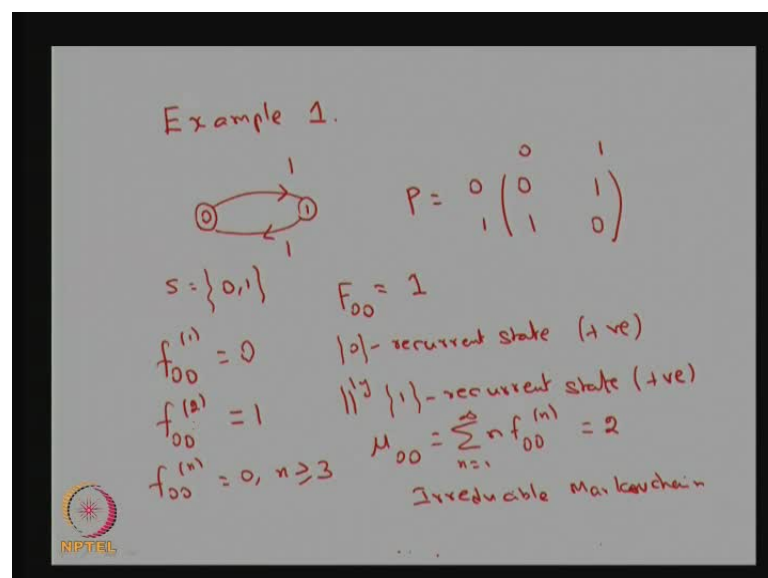 Example 1.
1
0 1
1
P = 0 1
0 ( 0 1 )
1 ( 1 0 )
S = {0,1}
F₀₀ = 1
f₀₀⁽¹⁾ = 0
{0} - recurrent state (+ve)
f₀₀⁽²⁾ = 1
|||ly {1} - recurrent state (+ve)
f₀₀⁽ⁿ⁾ = 0, n ≥ 3
μ₀₀ = ∑ₙ₌₁^∞ n f₀₀⁽ⁿ⁾ = 2
Irreducable Markovchain
NPTEL